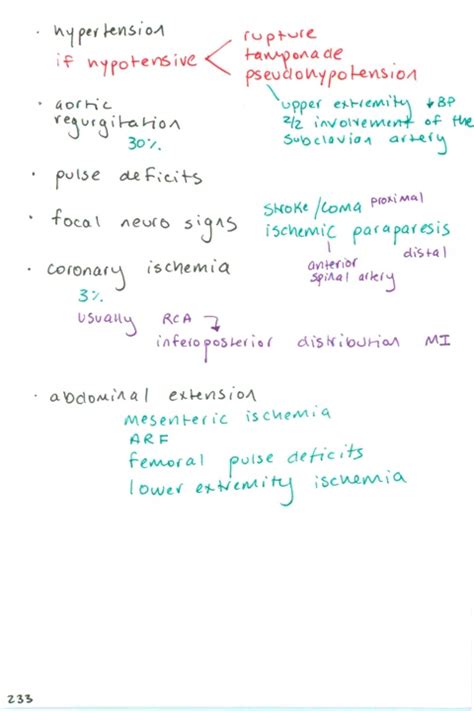 · hypertension
if hypotensive < rupture
tamponade
pseudohypotension
upper extremity ↓BP
2/2 involvement of the
subclavian artery
· aortic
regurgitation
30%
· pulse deficits
· focal neuro signs
stroke/coma proximal
ischemic paraparesis
distal
anterior
spinal artery
· coronary ischemia
3%
usually RCA
inferoposterior distribution MI
· abdominal extension
mesenteric ischemia
ARF
femoral pulse deficits
lower extremity ischemia
233